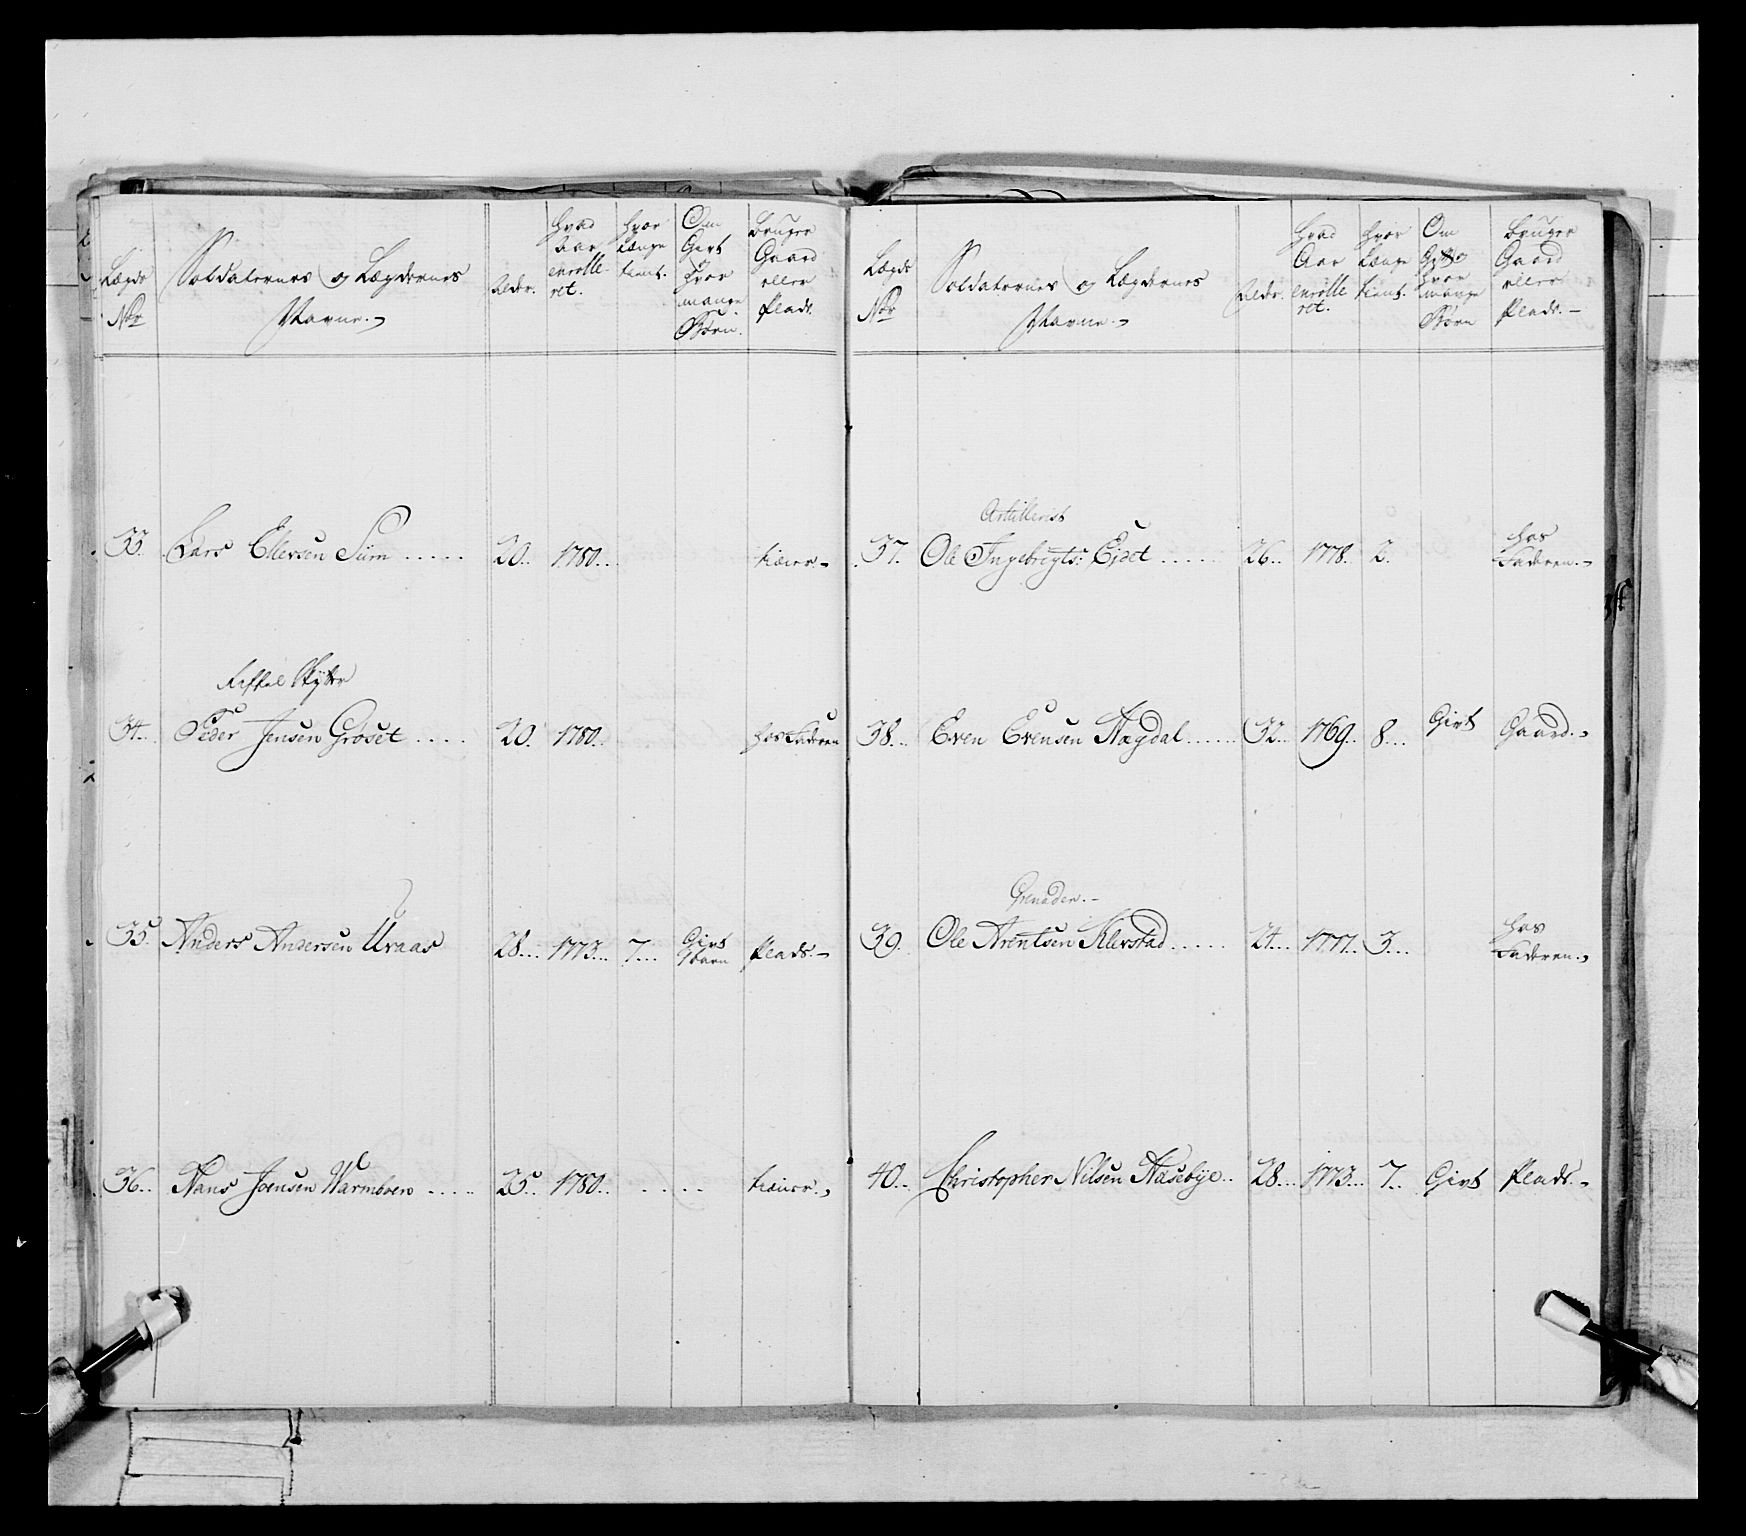 Lægds No
Soldaternes og Lægdernes Navne.
Alder.
Hvad Aar enrolleret.
Hvor Længe tient.
Om Givt hvor mange Børn.
Bruger Gaard eller Plads.
33. Lars Ellevsen Siim ..... 20.. 1780.. tiener.-
Riffel Skytter
34.. Peder Jensen Groset .... 20. 1780.. hos Faderen
35. Anders Andersen Uvaas 28... 1773... 7.... Givt 1 barn Plads.-
36.. Hans Joensen Warmboen ..... 25.. 1780.. .... tiener.,
Lægds No
Soldaternes og Lægdernes Navne.
Alder.
Hvad Aar enrolleret.
Hvor Længe tient.
Om Givt og hvor mange Børn
Bruger Gaard eller Plads.-
Artillerist
37. Ole Ingebrigts: Ejset ..... 26.. 1778. 2. hos Faderen.-
38... Even Evensen Hagdal ..... 32.. 1769.. 8... Givt Gaard.,
Grenader.-
39. Ole Arentsen Klevstad ..... 24... 1777.. 3.... hos Faderen.,
40.. Christopher Nilsen Haasebÿe.. 28... 1773... 7.. Givt Plads.-